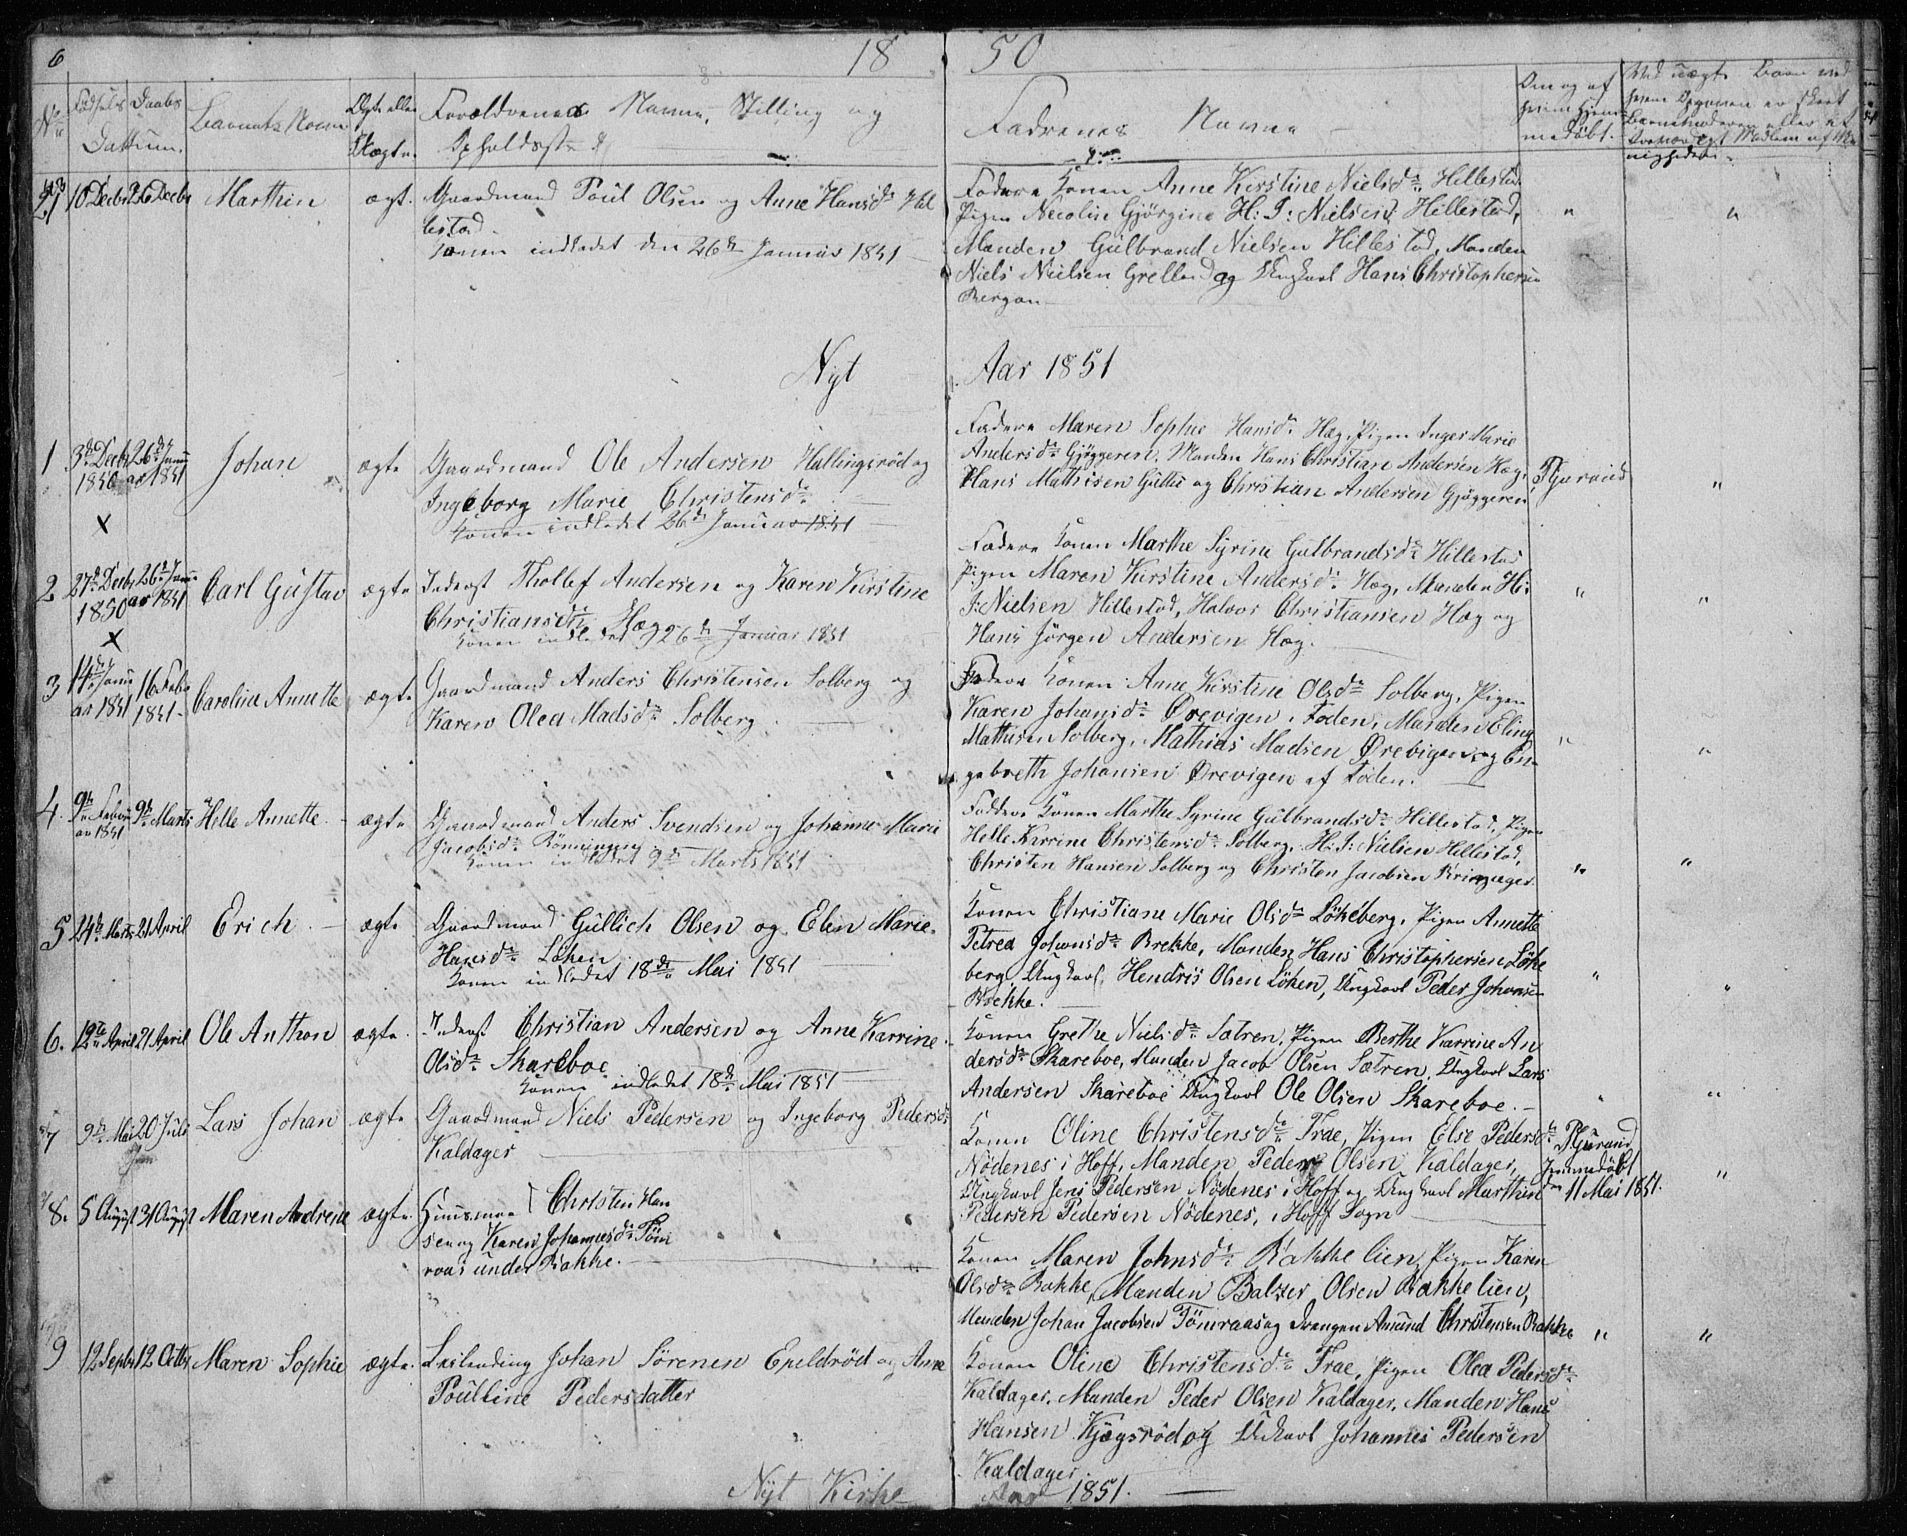 6 18 50
No Fødsels Daabs Barnets Navn Ægte eller Forældrenes Navne, Stilling og Faderenes Navne Om og af
Dattum. Uægte. Opholdsst. hvem hjemmedøbt.
21 10 Decbr 26 Decbr Marthin ægt. Gaardmand Poul Olsen og Anne Hansdr Hil
lestad.
Konen indledet den 26de Januar 1851
Faddere Konen Anne Kirstine Nielsdr Hillestad
Pigen Necoline Gjørgine H: J: Nielsen Hillestad,
Manden Gulbrand Nielsen Hillestad, Manden
Niels Nielsen Grelland og Ungkarl Hans Christophersen
Bergan
Nyt Aar 1851
1 3de Decbr 1850 26de Januar 1851 Johan ægte Gaardmand Ole Andersen Hallingsrød og
Ingeborg Marie Christensdr
Konen indledet 26de Januar 1851
Faddere Maren Sophie Hansdr Hæg, Pigen Inger Marie
Andersdr Gjøggeren, Manden Hans Christian Andersen Hæg,
Hans Mathisen Gutu og Christian Andersen Gjøggeren
"
2 27de Decbr 1850 26de Januar 1851 Carl Gustav ægte Inderst Thollef Andersen og Karen Kirstine
Christiansdr Hæg
Konen indledet 26de Januar 1851
Faddere Konen Marthe Syrine Gulbrandsdr Hillestad
Pigen Maren Kirstine Andersdr Hæg, Manden H:
J: Nielsen Hillestad, Halvor Christiansen Hæg og
Hans Jørgen Andersen Hæg.
3 14de Januar 1851 16 Febr 1851 Caroline Annette ægte Gaardmand Anders Christensen Solberg og
Karen Olea Madsdr Solberg.
Faddere Konen Anne Kirstine Olsdr Solberg, Pigen
Karen Johansdr Ørevigen i Foden, Manden Eling
Mathisen Solberg, Mathias Madsen Ørevigen og En-
gebreth Johansen Ørevigen af Foden.
4. 9de Februar 1851 9de Marts Helle Annette ægte Gaardmand Anders Svendsen og Johanne Marie
Jacobsdr Rønningen
Konen indledet 9de Marts 1851
Faddere Konen Marthe Syrine Gulbrandsdr Hillestad, Pigen
Helle Karrine Christensdr Solberg, H: J: Nielsen Hillestad,
Christen Hansen Solberg og Christen Jacobsen
5 24de Marts 21 April Erich ægte Gaardmand Gullich Olsen og Elen Marie
Hansdr Løken
Konen indledet 18de Mai 1851
Konen Christiane Marie Olsdr Løkeberg, Pigen Annette
Petrea Johansdr Brekke, Manden Hans Christophersen Løke
berg, Ungkarl Hendris Olsen Løken, Ungkarl Peder Johansen
Brekke.
6. 12te April 21 April Ole Anthon ægte Inderst Christian Andersen og Anne Karrine
Olsdr Skareboe
Konen indledet 18de Mai 1851
Konen Grethe Nielsdr Sætren, Pigen Berthe Karrine An
dersdr Skareboe, Manden Jacob Olsen Sætren, Ungkarl Lars
Andersen Skareboe Ungkarl Ole Olsen Skareboe.
7 9de Mai 20 Juli Lars Johan ægte Gaardmand Niels Pedersen og Ingeborg Pedersdr
Kaldager
Konen Oline Christensdr Trae, Pigen Else Pedersdr
Nødenes i Hoff, Manden Peder Olsen Kaldager,
Ungkarl Jens Pedersen Nødenes i Hoff og Ungkarl Marthin
Pedersen Pedersen Nødenes, i Hoff Sogn
hjemmedøbt
den 11 Mai 1851.
8. 5 August 31 August Maren Andrine ægte. Huusmand Christen Han
sen og Karen Johannesdr Tøm
raas under Bakke.
Konen Maren Johnsdr Bakkelien, Pigen Karen
Olsdr Bakke, Manden Balzer Olsen Bakkelien,
Manden Johan Jacobsen Tømraas og Drengen Amund Christensen Bakke
9 12 Septbr 12 Octbr Maren Sophie ægte. Leilending Johan Sørenen Epeldrød og Anne
Poulline Pedersdatter
Konen Oline Christensdr Trae, Pigen Olea Pedersdr
Kaldager, Manden Peder Olsen Kaldager, Manden Hans
Hansen Kjøgsrød og Ungkarl Johannes Pedersen
Kaldager.
Nyt Kirke Aar 1851.